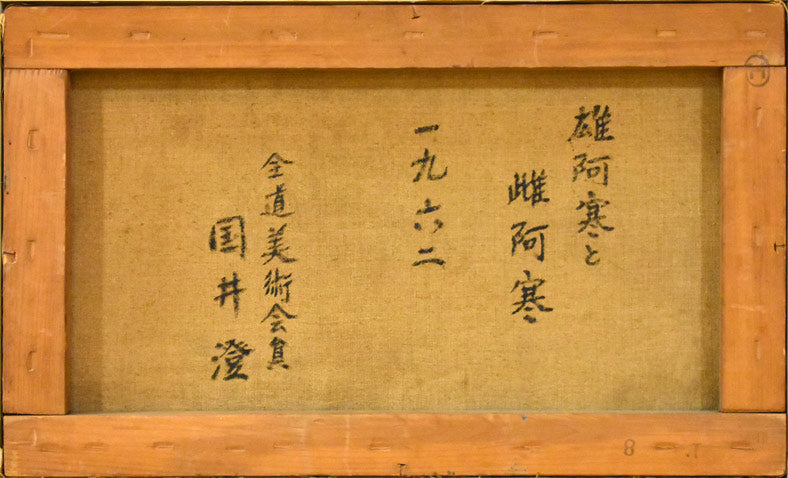 雄阿寒と
雌阿寒
一九六二
全道美術会員
国井澄
8 .T